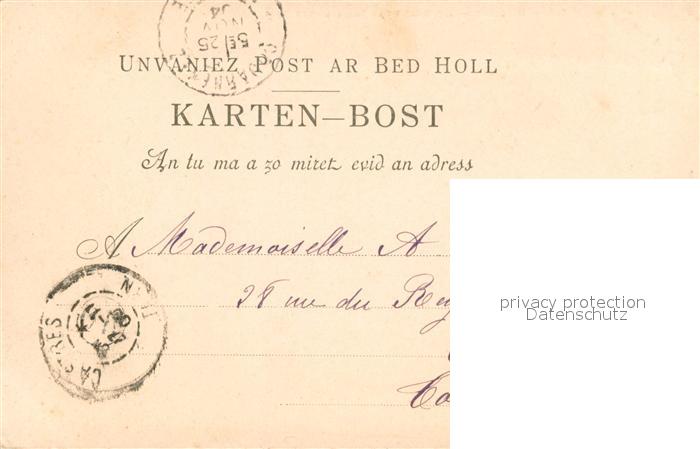 5E 25
NOV
04
UNVANIEZ POST AR BED HOLL
KARTEN—BOST
An tu ma a zo miret evid an adress
A Mademoiselle A
28 rue du
CASTRES
TARN
privacy protection
Datenschutz